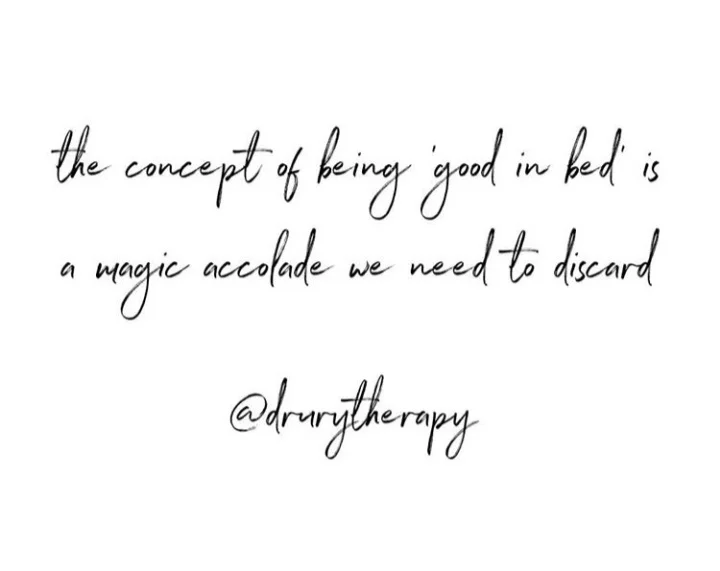 the concept of being 'good in bed' is
a magic accolade we need to discard
@drurytherapy